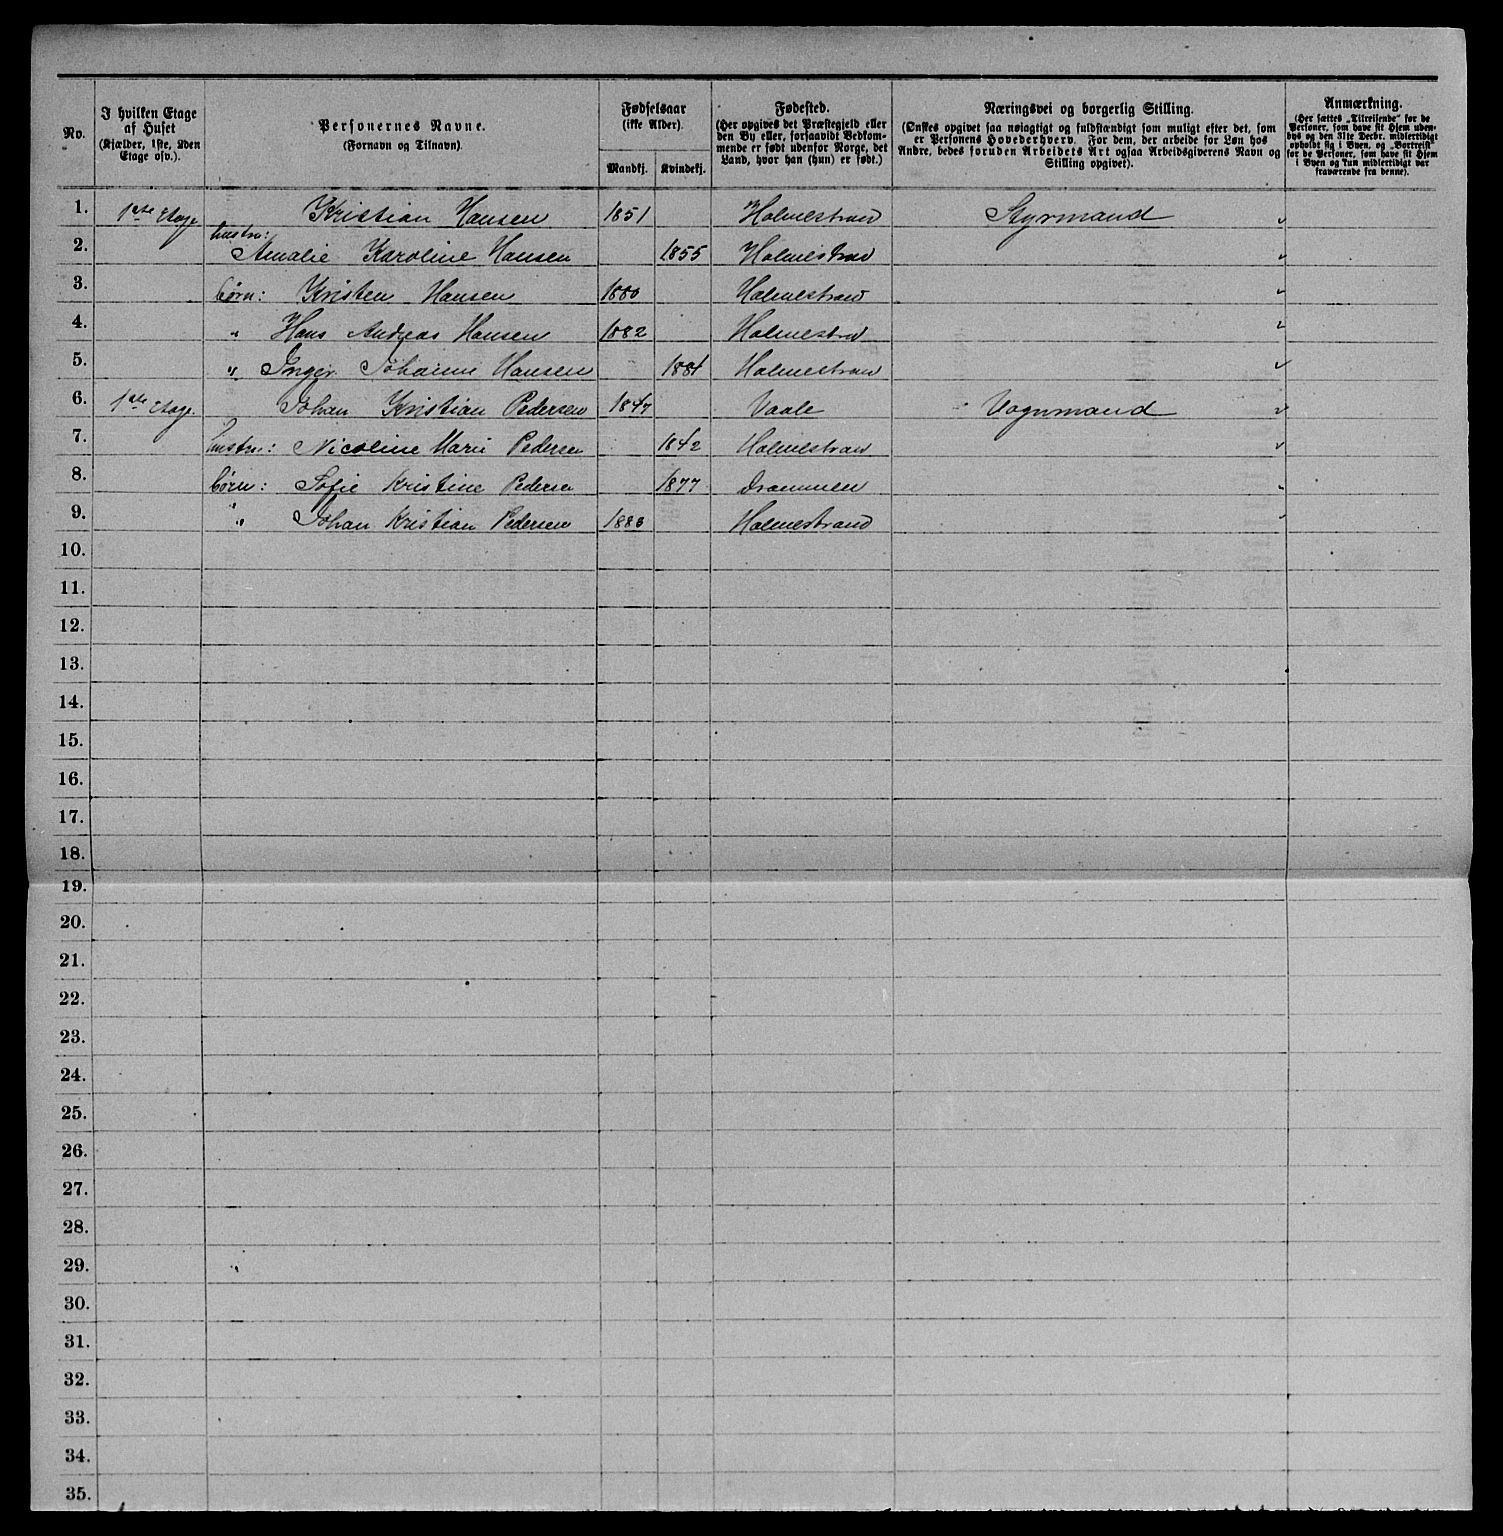 No.
I hvilken Etage
af Huset
(Kjælder, 1ste, 2den
Etage osv.).
Personernes Navne.
(Fornavn og Tilnavn).
Fødselsaar
(ikke Alder).
Mandkj. Kvindekj.
Fødested.
(Her opgives det Præstegjeld eller
den By eller, forsaavidt Vedkom-
mende er født udenfor Norge, det
Land, hvor han (hun) er født.)
Næringsvei og borgerlig Stilling.
(Ønskes opgivet saa nøiagtigt og fuldstændigt som muligt efter det, som
er Personens Hovederhverv. For dem, der arbeide for Løn hos
Andre, bedes foruden Arbeidets Art ogsaa Arbeidsgiverens Navn og
Stilling opgivet).
Anmærkning.
(Her sættes „Tilreisende" for de
Personer, som have sit Hjem uden-
bys og den 31te Decbr. midlertidigt
opholdt sig i Byen, og „Bortreist"
for de Personer, som have sit Hjem
i Byen og kun midlertidigt var
fraværende fra denne).
1. 1ste Etage Kristian Hansen 1851 Holmestrand Styrmand
2. hustru: Amalie Karoline Hansen 1855 Holmestrand
3. børn: Kristen Hansen 1880 Holmestrand
4. " Hans Andreas Hansen 1882 Holmestrd
5. " Inger Johanne Hansen 1884 Holmestrand
6. 1ste Etage Johan Kristian Pedersen 1847 Vaale Vognmand
7. hustru: Nicoline Marie Pedersen 1842 Holmestrand
8. børn: Sofie Kristine Pedersen 1877 Drammen
9. " Johan Kristian Pedersen 1883 Holmestrand
10.
11.
12.
13.
14.
15.
16.
17.
18.
19.
20.
21.
22.
23.
24.
25.
26.
27.
28.
29.
30.
31.
32.
33.
34.
35.